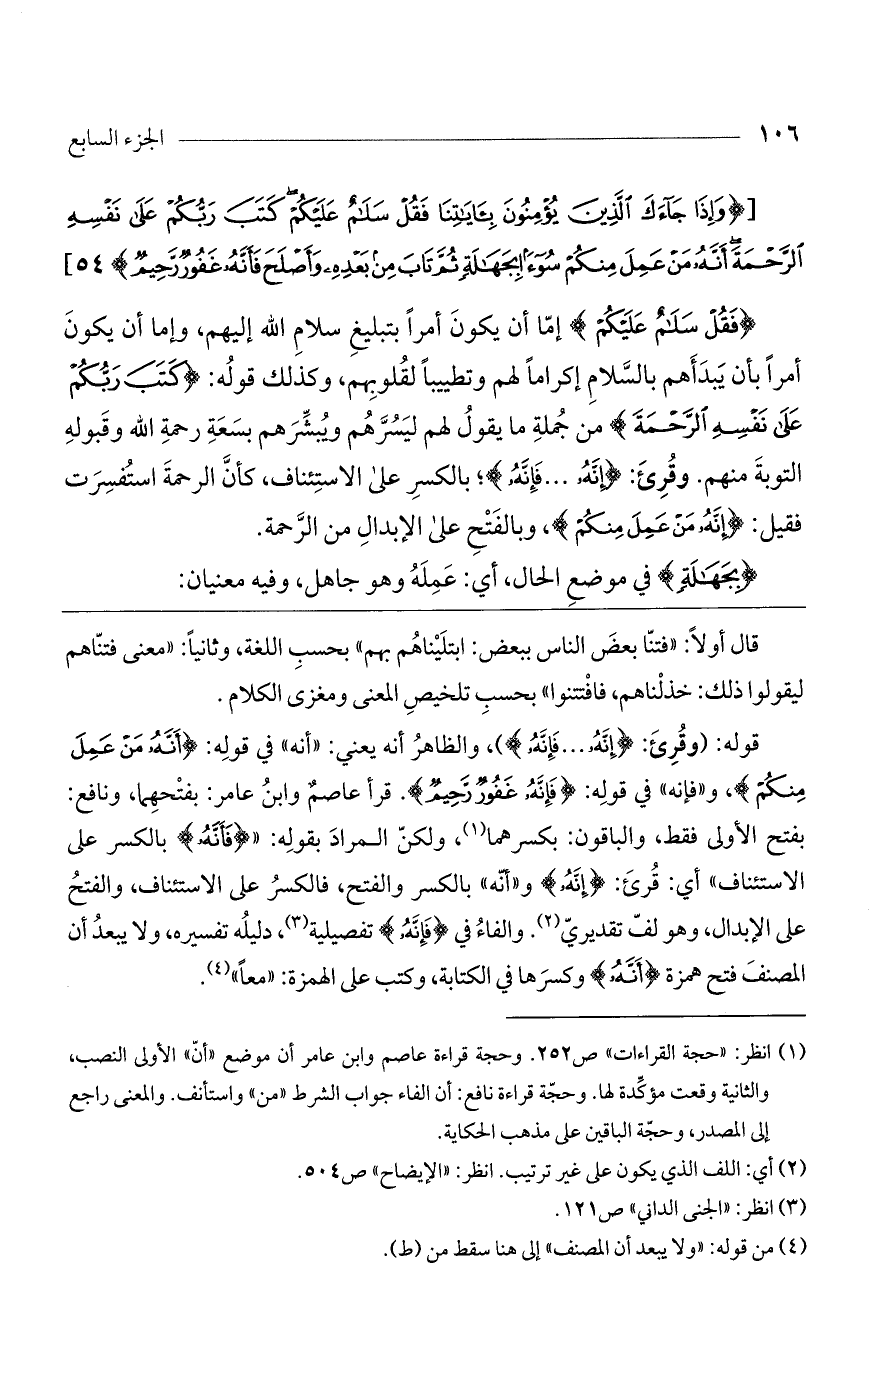 ١٠٦ الجزء السابع
[﴿وَإِذَا جَآءَكَ ٱلَّذِينَ يُؤْمِنُونَ بِـَٔايَـٰتِنَا فَقُلْ سَلَـٰمٌ عَلَيْكُمْ ۖ كَتَبَ رَبُّكُمْ عَلَىٰ نَفْسِهِ
ٱلرَّحْمَةَ ۖ أَنَّهُۥ مَنْ عَمِلَ مِنكُمْ سُوٓءًۢا بِجَهَـٰلَةٍ ثُمَّ تَابَ مِنۢ بَعْدِهِۦ وَأَصْلَحَ فَأَنَّهُۥ غَفُورٌ رَّحِيمٌ﴾ ٥٤]
﴿فَقُلْ سَلَـٰمٌ عَلَيْكُمْ﴾ إمّا أن يكونَ أمراً بتبليغِ سلامِ الله إليهم، وإما أن يكونَ
أمراً بأن يَبدَأَهم بالسَّلامِ إكراماً لهم وتطييباً لقُلوبِهم، وكذلك قولُه: ﴿كَتَبَ رَبُّكُمْ
عَلَىٰ نَفْسِهِ ٱلرَّحْمَةَ﴾ من جُملةِ ما يقولُ لهم ليَسُرَّهُم ويُبشِّرَهم بسَعَةِ رحمةِ الله وقَبولهِ
التوبةَ منهم. وقُرِئَ: ﴿إِنَّهُۥ ...فَإِنَّهُۥ﴾؛ بالكسرِ علىٰ الاستِئناف، كأنَّ الرحمةَ استُفسِرَت
فقيل: ﴿إِنَّهُۥ مَنْ عَمِلَ مِنكُمْ﴾، وبالفَتْحِ علىٰ الإبدالِ من الرَّحمة.
﴿بِجَهَـٰلَةٍ﴾ في موضعِ الحال، أي: عَمِلَهُ وهو جاهل، وفيه معنيان:
قال أولاً: «فتنّا بعضَ الناس ببعض: ابتلَيْناهُم بهم» بحسبِ اللغة، وثانياً: «معنى فتنّاهم
ليقولوا ذلك: خذلْناهم، فافْتتنوا» بحسبِ تلخيصِ المعنى ومغزى الكلام .
قوله: (وقُرِئَ: ﴿إِنَّهُۥ...فَإِنَّهُۥ﴾)، والظاهرُ أنه يعني: «أنه» في قولِه: ﴿أَنَّهُۥ مَنْ عَمِلَ
مِنكُمْ﴾، و«فإنه» في قولِه: ﴿فَإِنَّهُۥ غَفُورٌ رَّحِيمٌ﴾. قرأ عاصمٌ وابنُ عامر: بفتْحِهما، ونافع:
بفتح الأولى فقط، والباقون: بكسرهما(١)، ولكنّ المرادَ بقولِه: «﴿فَأَنَّهُۥ﴾ بالكسر على
الاستئناف» أي: قُرئ: ﴿إِنَّهُۥ﴾ و«أنّه» بالكسر والفتح، فالكسرُ على الاستئناف، والفتحُ
على الإبدال، وهو لفّ تقديريّ(٢). والفاءُ في ﴿فَإِنَّهُۥ﴾ تفصيلية(٣)، دليلُه تفسيره، ولا يبعدُ أن
المصنفَ فتح همزة ﴿أَنَّهُۥ﴾ وكسرَها في الكتابة، وكتب على الهمزة: «معاً»(٤).
(١) انظر: «حجة القراءات» ص٢٥٢. وحجة قراءة عاصم وابن عامر أن موضع «أنّ» الأولى النصب،
والثانية وقعت مؤكِّدة لها. وحجّة قراءة نافع: أن الفاء جواب الشرط «من» واستأنف. والمعنى راجع
إلى المصدر، وحجّة الباقين على مذهب الحكاية.
(٢) أي: اللف الذي يكون على غير ترتيب. انظر: «الإيضاح» ص٥٠٤.
(٣) انظر: «الجنى الداني» ص١٢١.
(٤) من قوله: «ولا يبعد أن المصنف» إلى هنا سقط من (ط).